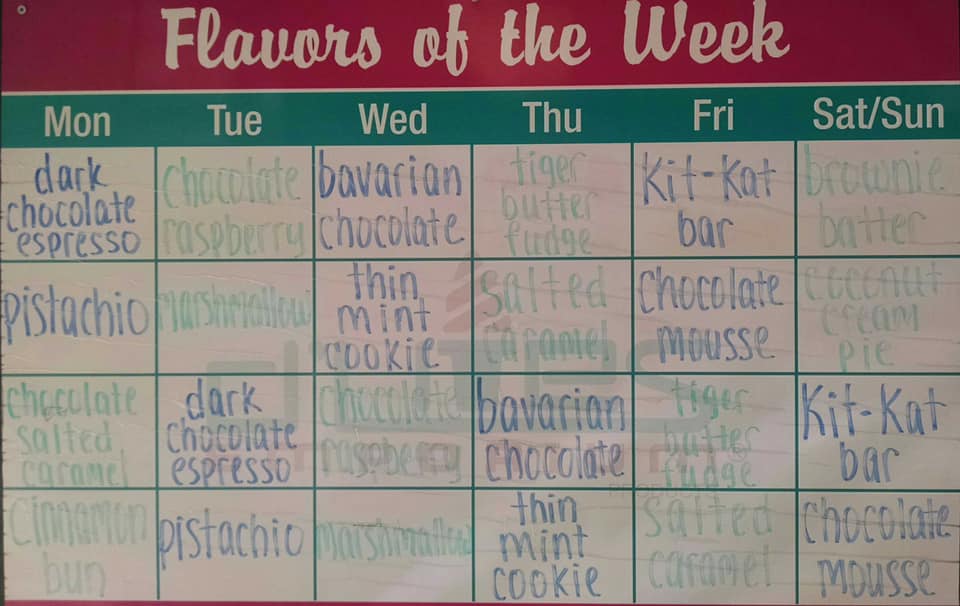 Flavors of the Week
Mon Tue Wed Thu Fri Sat/Sun
dark
chocolate
espresso
chocolate
raspberry
bavarian
chocolate
tiger
butter
fudge
Kit-Kat
bar
brownie
batter
pistachio
marshmallow
thin
mint
cookie
salted
caramel
chocolate
mousse
coconut
cream
pie
chocolate
salted
caramel
dark
chocolate
espresso
chocolate
raspberry
bavarian
chocolate
tiger
butter
fudge
Kit-Kat
bar
cinnamon
bun
pistachio
marshmallow
thin
mint
cookie
salted
caramel
chocolate
mousse